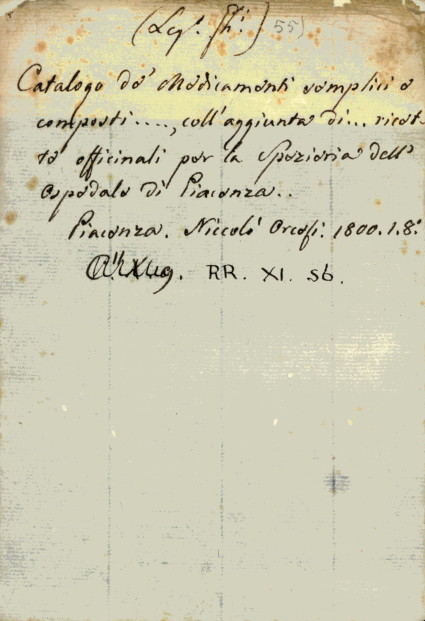 55)
Catalogo de' Medicamenti semplici e
composti...., coll'aggiunta di... ricet-
te officinali per la Spezieria dell'
Ospedale di Piacenza..
Piacenza. Niccolò Orcesi. 1800. 1. 8.°
RR. XI. 56.